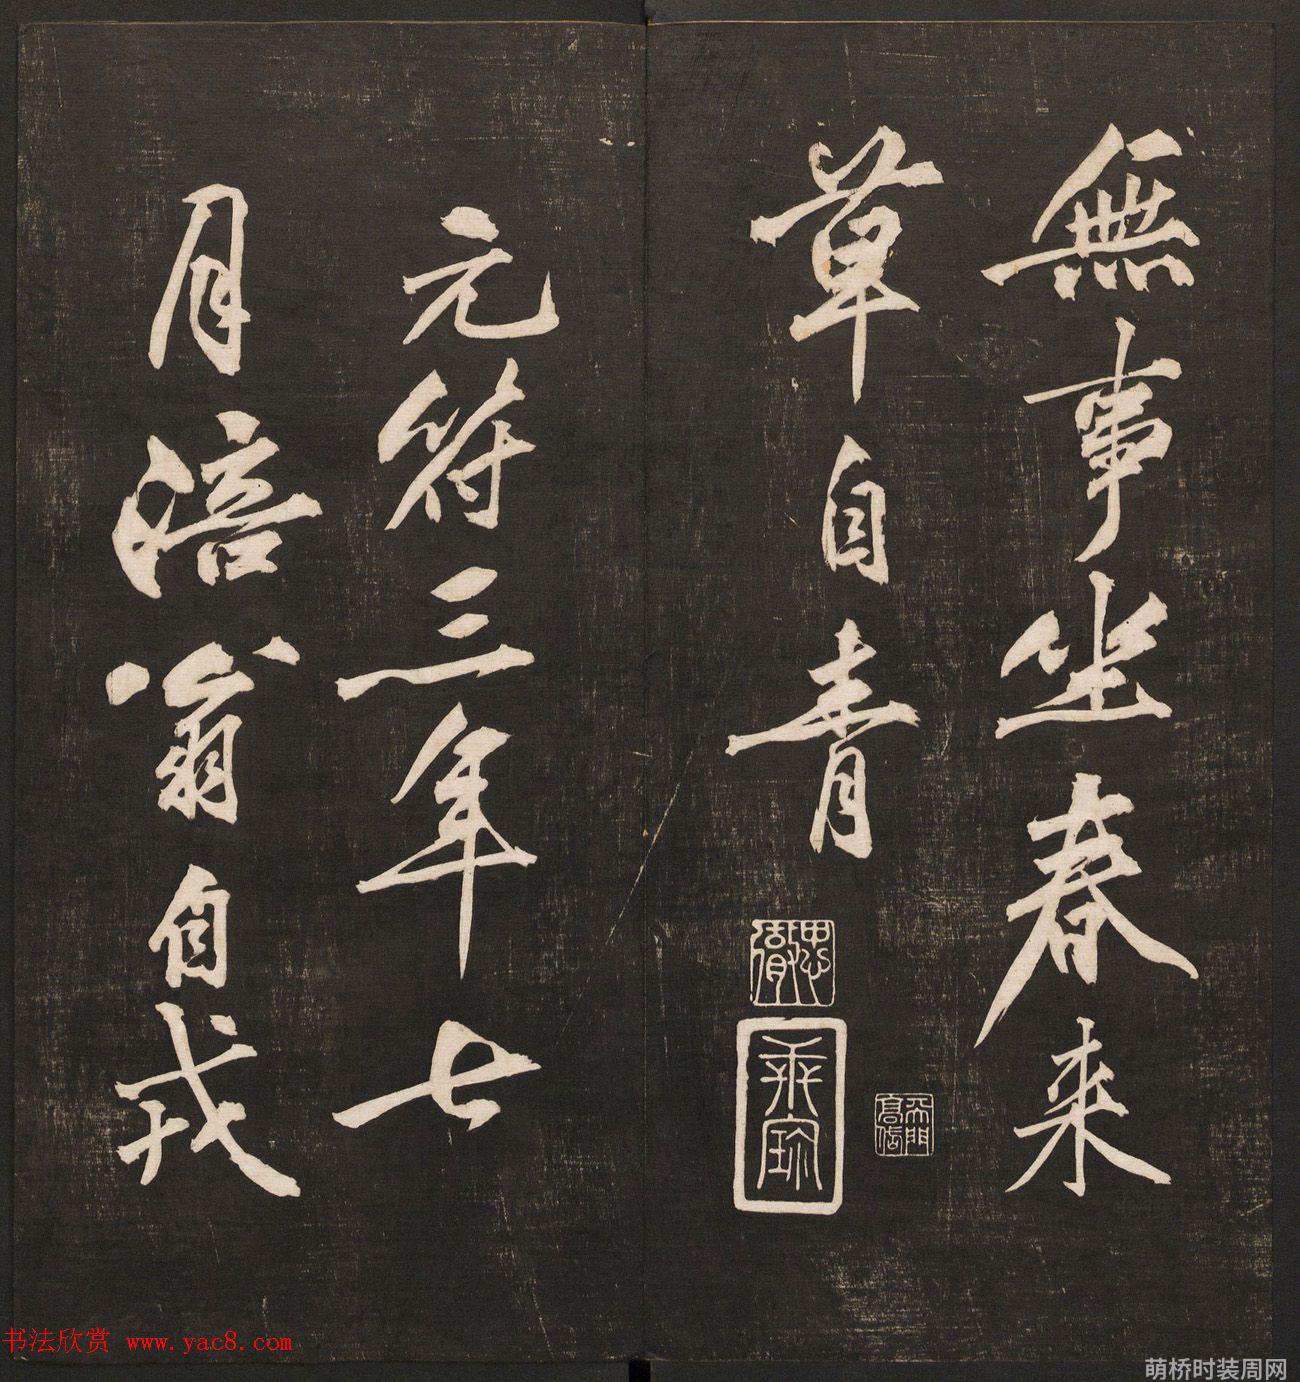 無事坐春来
草自青
元符三年七
月涪翁自戎
书法欣赏 www.yac8.com
萌桥时装周网